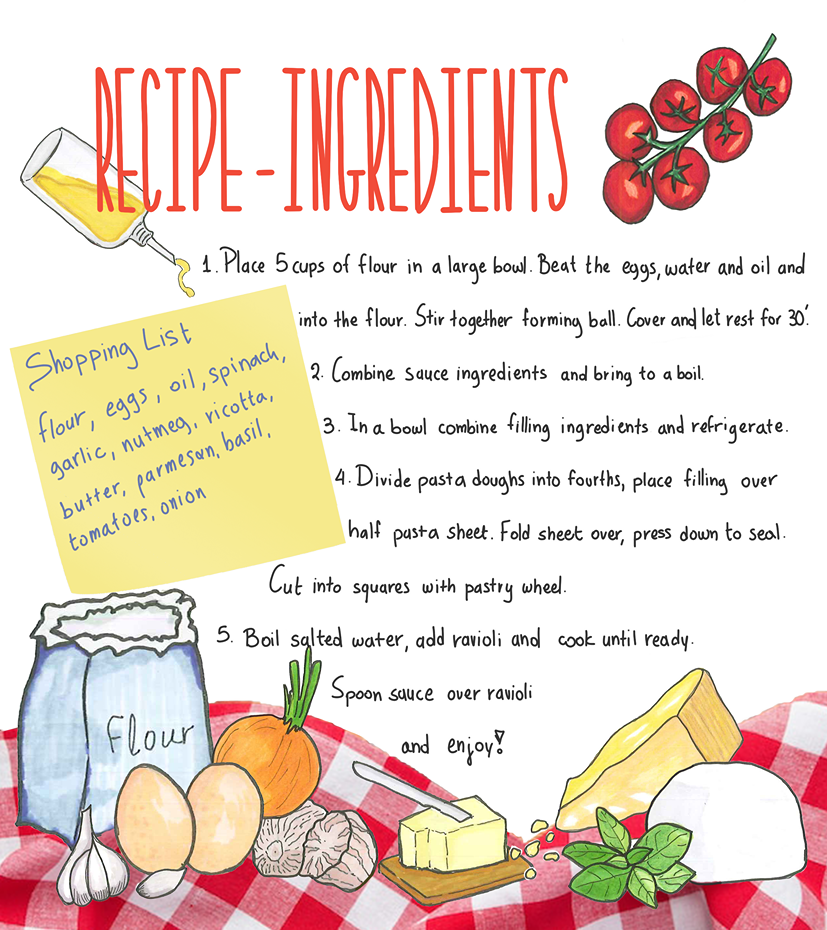 RECIPE-INGREDIENTS
1. Place 5 cups of flour in a large bowl. Beat the eggs, water and oil and
into the flour. Stir together forming ball. Cover and let rest for 30'.
2. Combine sauce ingredients and bring to a boil.
3. In a bowl combine filling ingredients and refrigerate.
4. Divide pasta doughs into fourths, place filling over
half pasta sheet. Fold sheet over, press down to seal.
Cut into squares with pastry wheel.
5. Boil salted water, add ravioli and cook until ready.
Spoon sauce over ravioli
and enjoy!
Shopping List
flour, eggs, oil, spinach,
garlic, nutmeg, ricotta,
butter, parmesan, basil,
tomatoes, onion
Flour